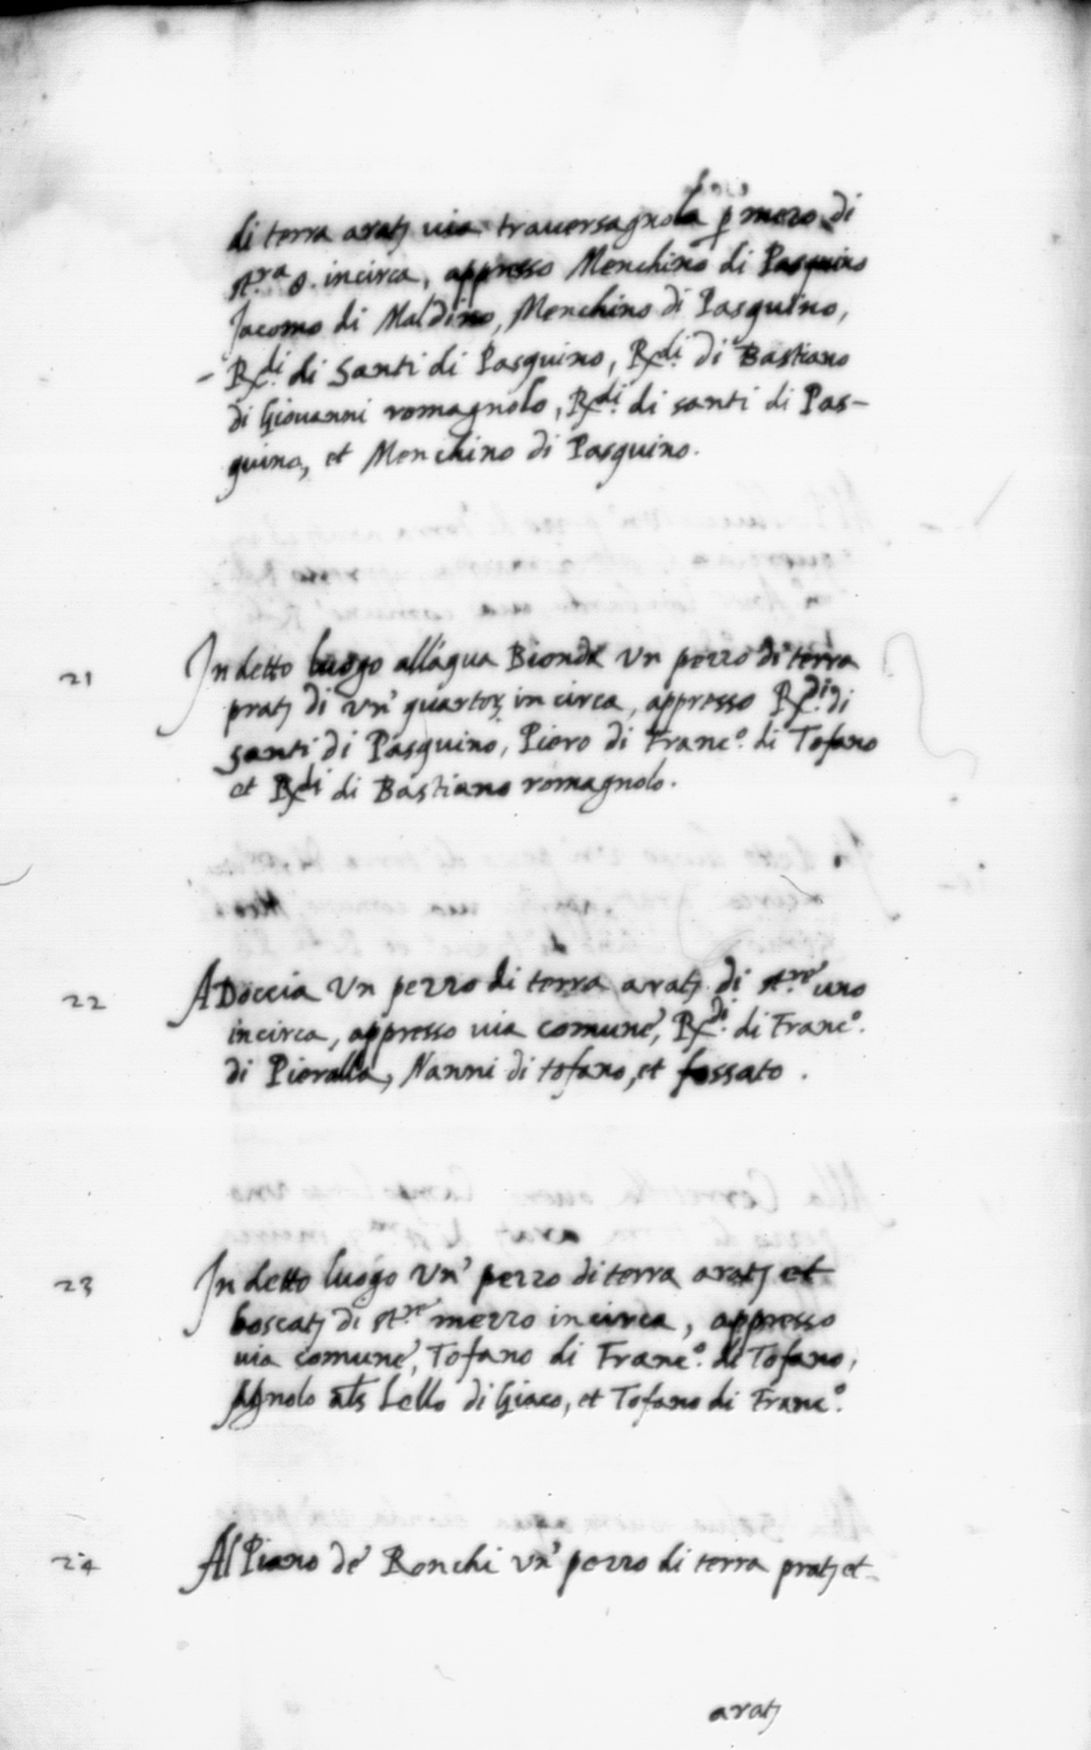 di terra arat; via trauersagnola p mezo di
st.ra 8. incirca, appresso Menchino di Pasquino
Jacomo di Maldino, Menchino di Pasquino,
- Rdi. di Santi di Pasquino, Rdi. di Bastiano
di Giouanni romagnolo, Rdi. di santi di Pas-
quino, et Menchino di Pasquino.
21 In detto luogo all'agua Bionda Un pezzo di terra
prat; di vn' quarto; in circa, appresso Rdi. di
santi di Pasquino, Piero di Franc.o di Tofano
et Rdi di Bastiano romagnolo.
22 A Doccia Un pezzo di terra arat; di st.re uno
incirca, appresso uia comune, Rdi. di Franc.o
di Pieralla, Nanni di tofano, et fossato.
23 In detto luogo Un' pezzo di terra arat; et
boscat; di st.re mezzo in circa, appresso
uia comune, Tofano di Franc.o di Tofano,
Agnolo als Lello di Giaco, et Tofano di Franc.o
24 Al Piano de' Ronchi vn' pezzo di terra prat; et-
arat;